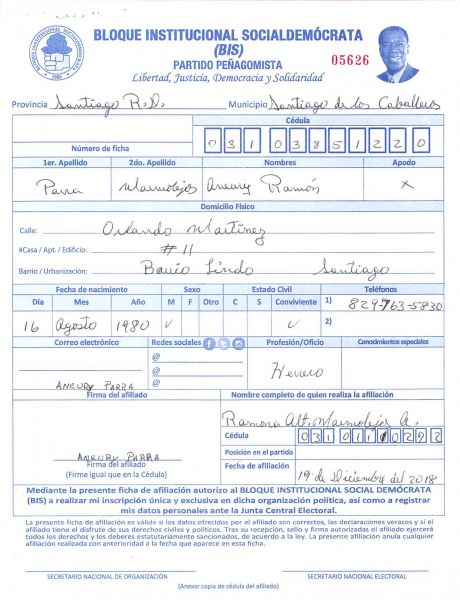 BLOQUE INSTITUCIONAL SOCIALDEMÓCRATA
(BIS)
05626
PARTIDO PEÑAGOMISTA
Libertad, Justicia, Democracia y Solidaridad
Provincia Santiago R.D. Municipio Santiago de los Caballeros
Cédula
Número de ficha 031 0385122 0
1er. Apellido 2do. Apellido Nombres Apodo
Parra Marmolejos Aneury Ramón X
Domicilio Físico
Calle: Orlando Martínez
#Casa / Apt. / Edificio: #11
Barrio / Urbanización: Barrio Lindo Santiago
Fecha de nacimiento Sexo Estado Civil Teléfonos
Día Mes Año M F Otro C S Conviviente 1) 829-763-5830
16 Agosto 1980 ✓ ✓ 2)
Correo electrónico Redes sociales Profesión/Oficio Conocimientos especiales
@
@
@
Herrero
ANEURY PARRA
Firma del afiliado Nombre completo de quien realiza la afiliación
Ramona Alt. Marmolejos A.
Cédula 031 0111029 2
Posición en el partido
ANEURY PARRA
Firma del afiliado
(Firme igual que en la Cédula)
Fecha de afiliación 19 de Diciembre del 2018
Mediante la presente ficha de afiliación autorizo al BLOQUE INSTITUCIONAL SOCIAL DEMÓCRATA
(BIS) a realizar mi inscripción única y exclusiva en dicha organización política, así como a registrar
mis datos personales ante la Junta Central Electoral.
La presente ficha de afiliación es válida si los datos ofrecidos por el afiliado son correctos, las declaraciones veraces y si el
afiliado tiene el disfrute de sus derechos civiles y políticos. Tras su recepción, sello y firma autorizadas el afiliado ejercerá
todos los derechos y los deberes estatutariamente sancionados, de acuerdo a la ley. La presente afiliación anula cualquier
afiliación realizada con anterioridad a la fecha que aparece en esta ficha.
SECRETARIO NACIONAL DE ORGANIZACIÓN SECRETARIO NACIONAL ELECTORAL
(Anexar copia de cédula del afiliado)